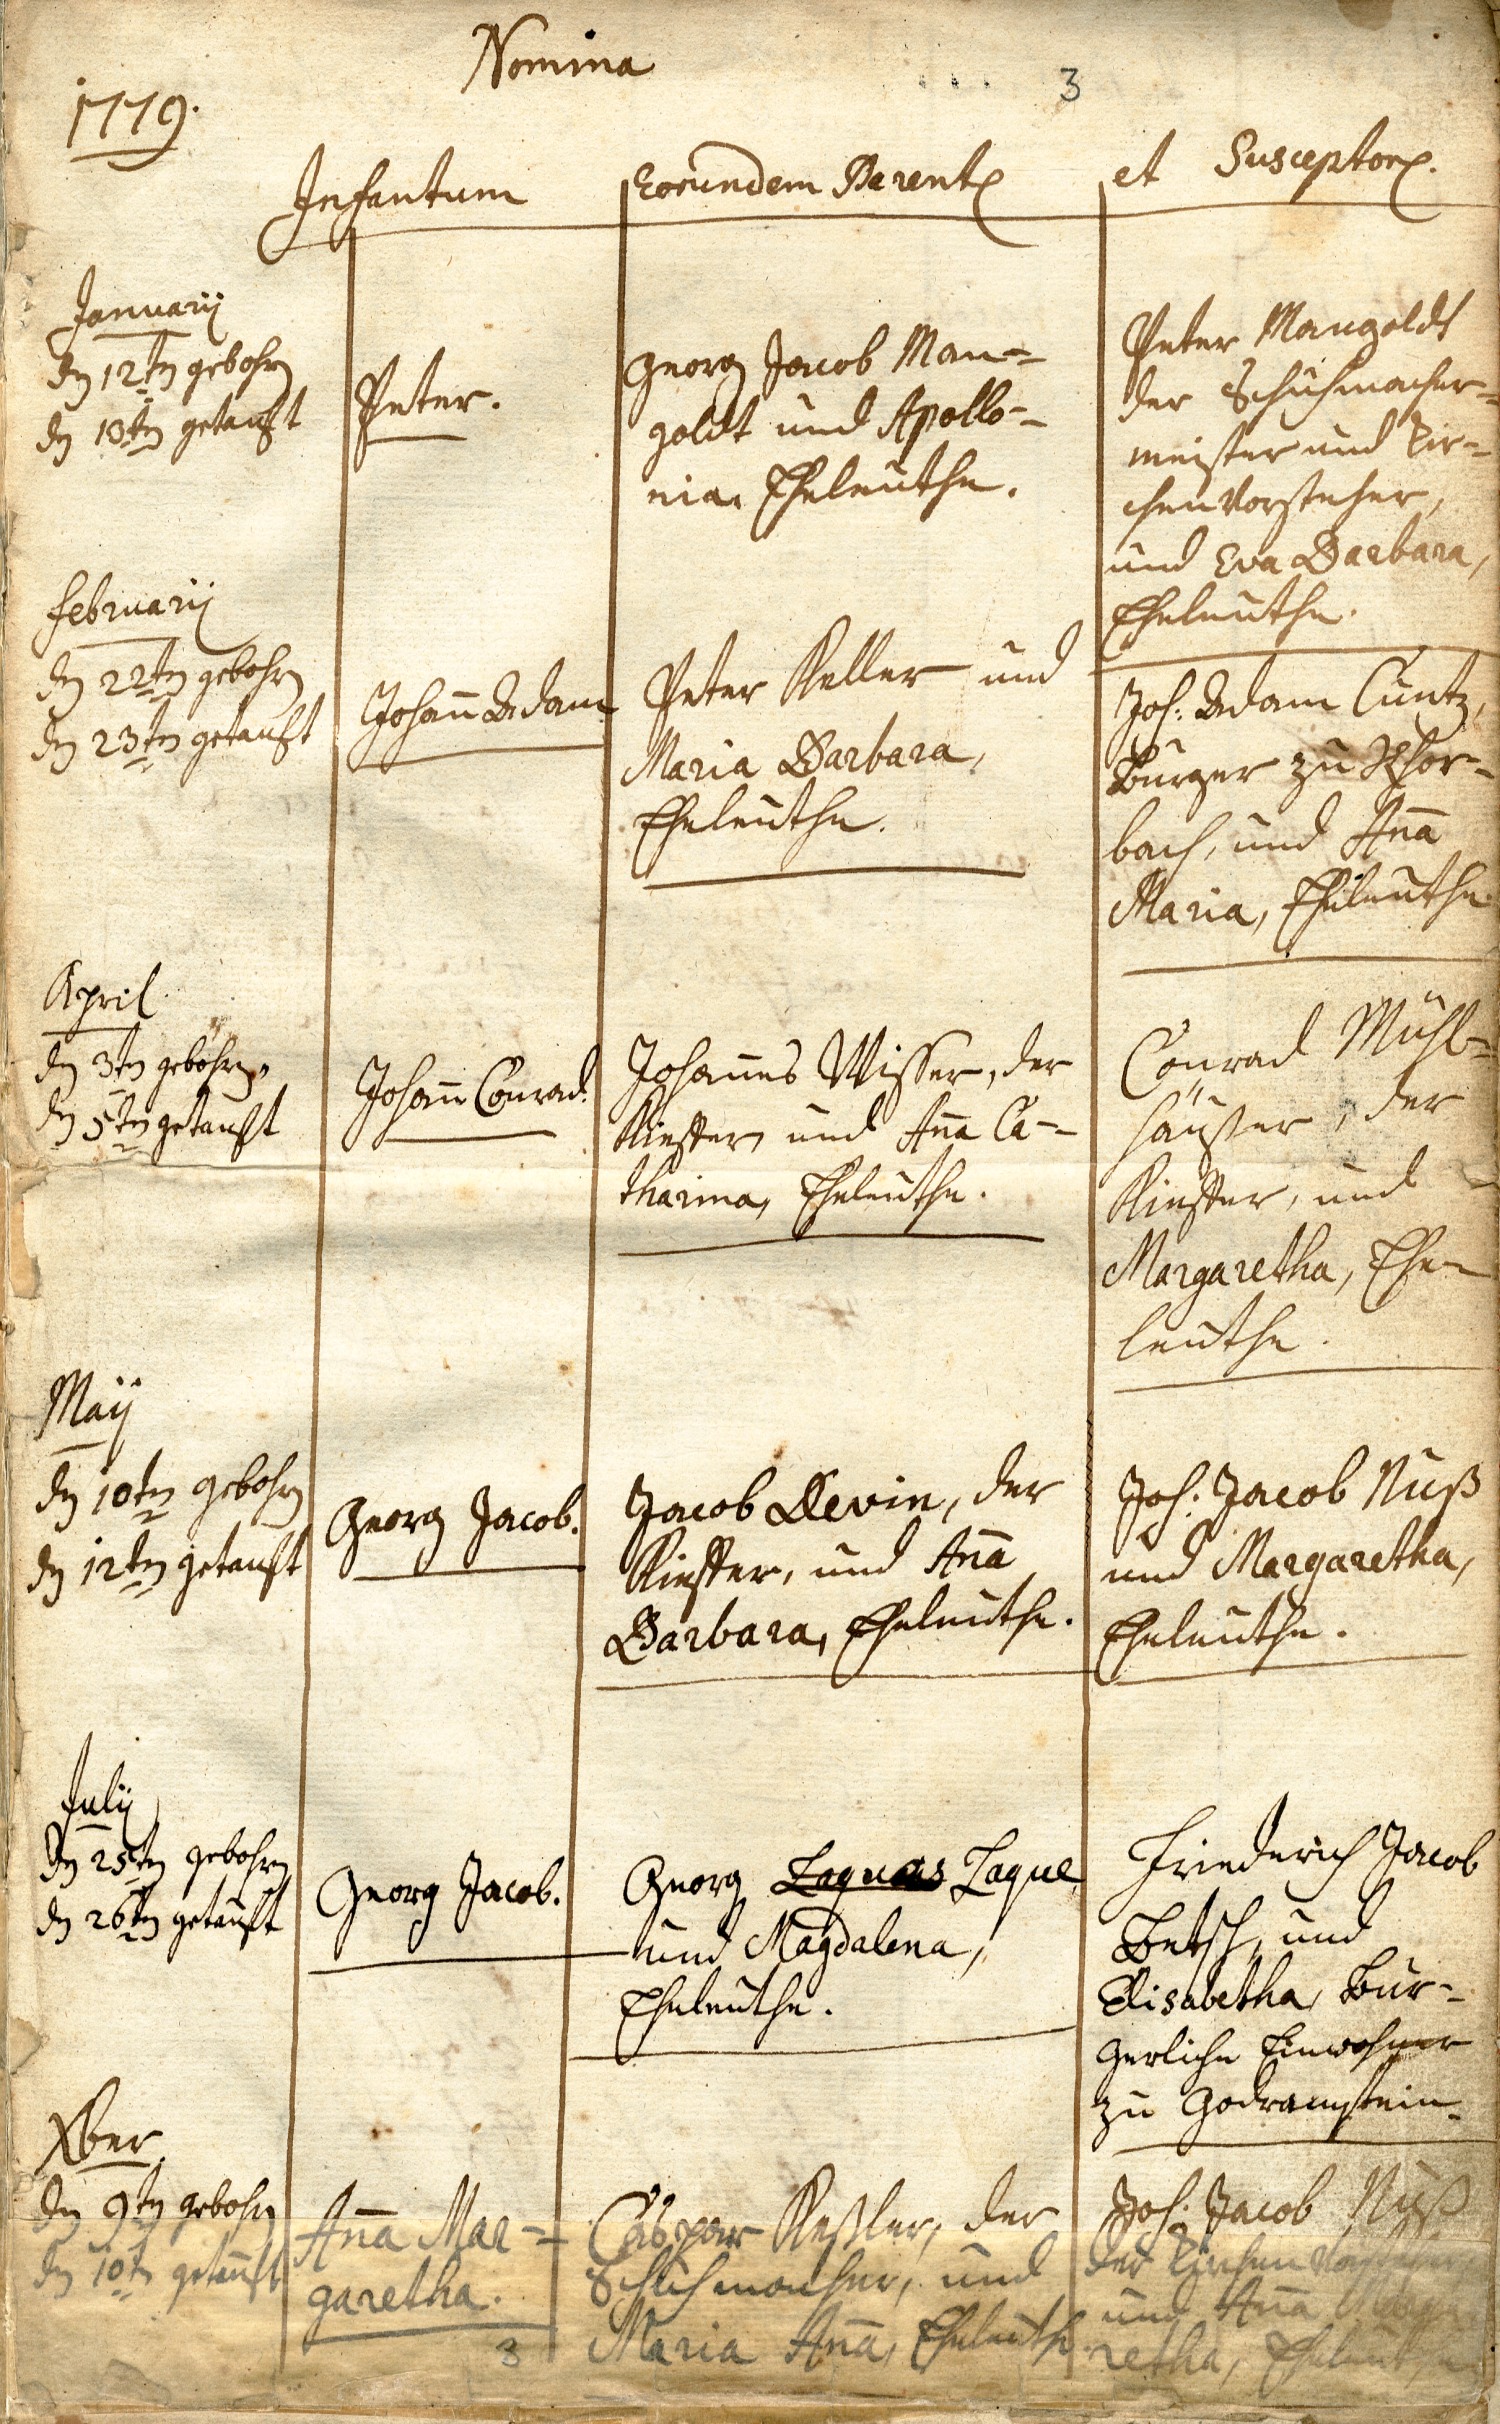 Nomina
3
1779.
Infantum
Eorundem Parent
et Susceptor.
Januarij
dn 12tn gebohrn
dn 13tn getaufft
Peter.
Georg Jacob Man-
goldt und Apollo-
nia, Eheleuthe.
Peter Mangoldt
der Schuhmacher-
meister und Kir-
chenvorsteher,
und Eva Barbara,
Eheleuthe.
Februarij
dn 22tn gebohrn
dn 23tn getaufft
Johañ Adam
Peter Keller und
Maria Barbara,
Eheleuthe.
Joh: Adam Cuntz,
Burger zu
bach, und Aña
Maria, Eheleuthe
April
dn 3tn gebohrn,
dn 5tn getaufft
Johañ Conrad.
Johañes Wisser, der
Kieffer, und Aña Ca-
tharina, Eheleuthe.
Conrad Mühl-
häußer, der
Kieffer, und
Margaretha, Ehe-
leuthe.
Maij
dn 10tn gebohrn
dn 12tn getaufft
Georg Jacob.
Jacob Devin, der
Kieffer, und Aña
Barbara, Eheleuthe.
Joh: Jacob Nuß
und Margaretha,
Eheleuthe.
Julij
dn 25tn gebohrn
dn 26tn getaufft
Georg Jacob.
Georg Laquas Laque
und Magdalena,
Eheleuthe.
Friederich Jacob
Betsch, und
Elisabetha, Bur-
gerliche Einwohner
zu Godramstein.
Xber
dn 9tn gebohrn
dn 10tn getaufft
Aña Mar-
garetha.
Caspar Keßler, der
Schuhmacher, und
Maria Aña, Eheleuth
Joh: Jacob Nuß
der Kirchenvorsteher
und Aña Marga
retha, Eheleuthe
8